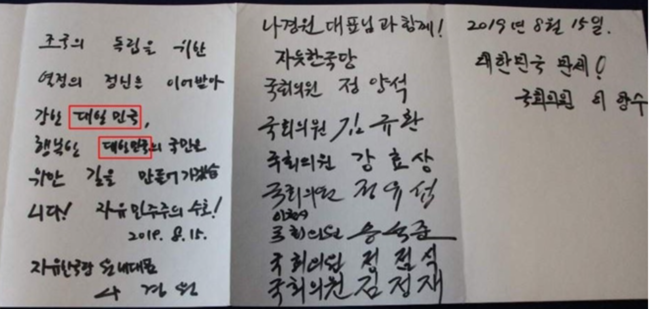 조국의 독립을 위한
열정의 정신을 이어받아
강한 대일민국,
행복한 대일민국의 국민을
위한 길을 만들어가겠습
니다! 자유민주주의 수호!
2019. 8. 15.
자유한국당 원내대표
나경원
나경원 대표님과 함께!
자유한국당
국회의원 정양석
국회의원 김규환
국회의원 강효상
국회의원 정유섭
국회의원 송석준
국회의원 정점식
국회의원 김정재
2019년 8월 15일.
대한민국 만세!
국회의원 이양수